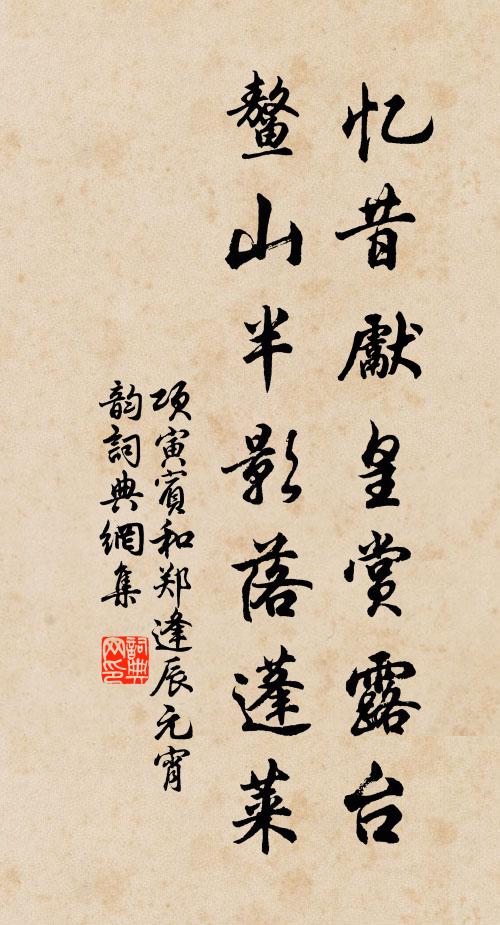 忆昔獻皇赏露台
鳌山半影落蓬莱
项寅賓和郑逢辰元宵
韵詞典網集
詞典网印